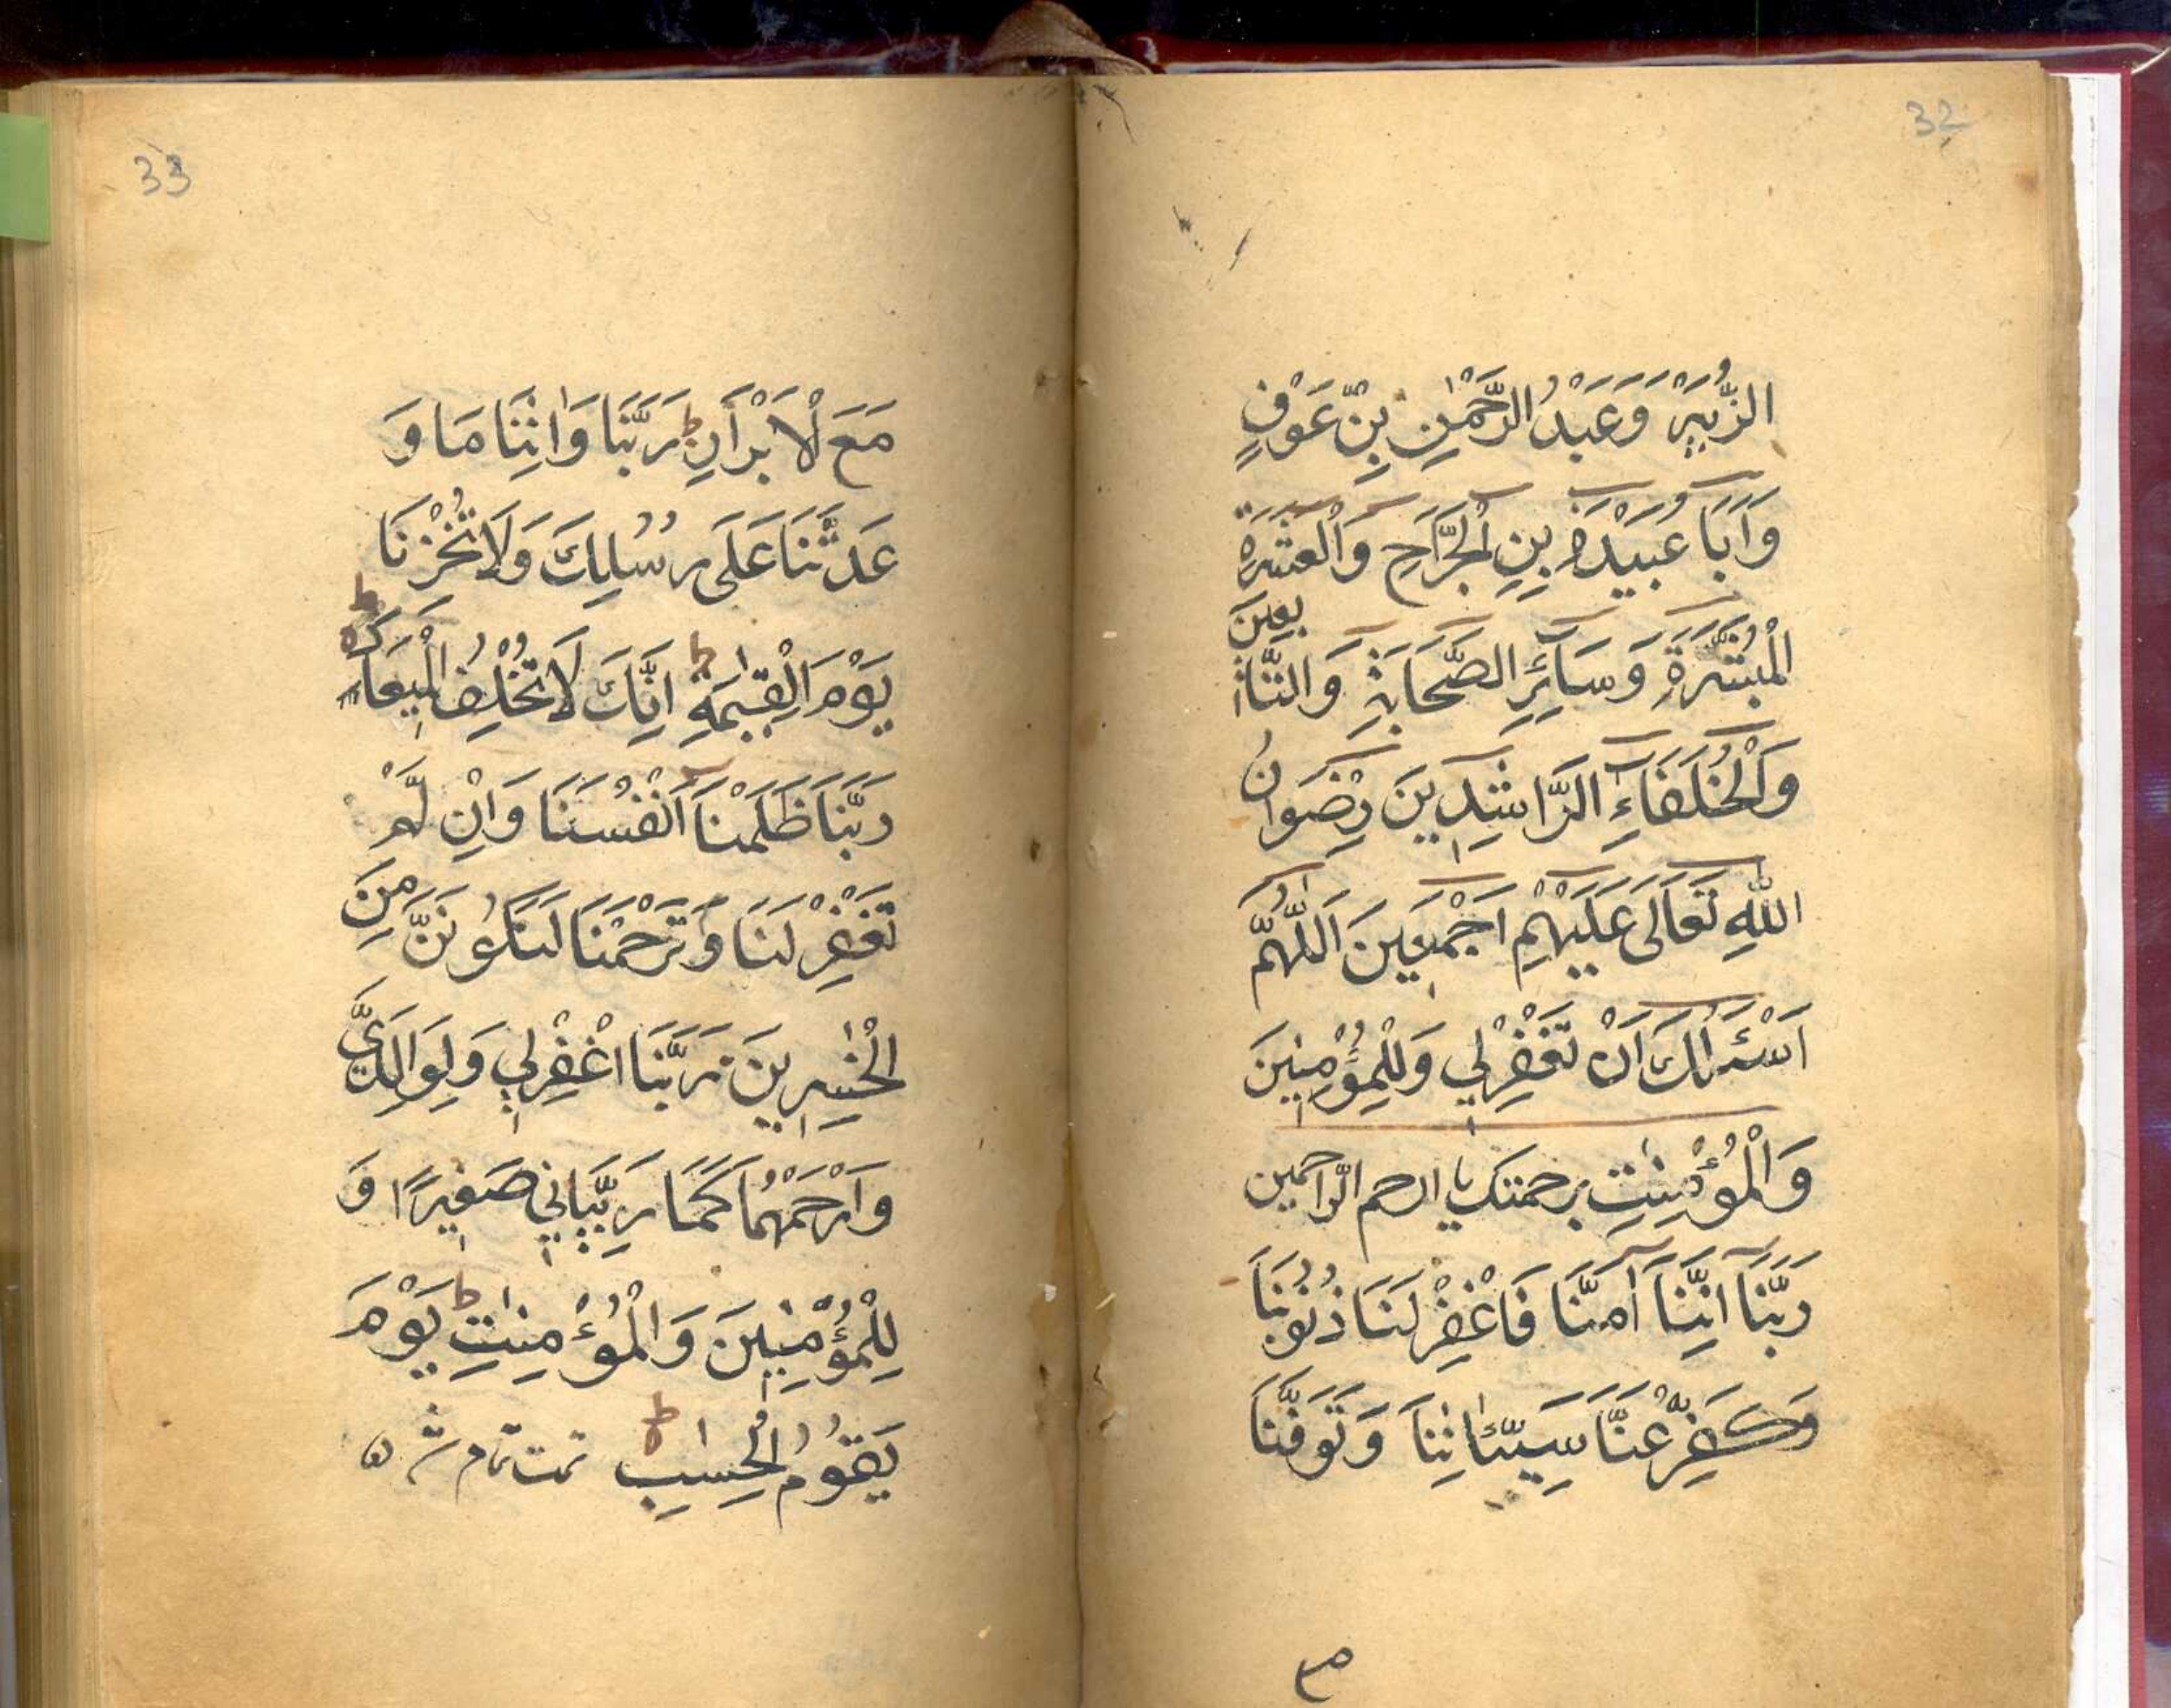 32
الزُّبَيْرَ وَعَبْدُ الرَّحْمٰنِ بِنْ عَوْفٍ
وَاَبَا عُبَيْدَةِ بِنِ الْجَرَّاحِ وَالْعَشَرَةِ
الْمُبَشَّرَةِ وَسَآئِرِ الصَّحَابَةِ وَالتَّابِعِينَ
وَالْخُلَفَآءِ الرَّاشِدِينَ رِضْوَانُ
اللّٰهِ تَعَالَى عَلَيْهِمْ اَجْمَعِينَ اَللّٰهُمَّ
اَسْئَلُكَ اَنْ تَغْفِرْلِي وَلِلْمُؤْمِنِينَ
وَالْمُؤْمِنٰتِ برحمتك يا ارحم الراحمين
رَبَّنَا اِنَّنَا آمَنَّا فَاغْفِرْ لَنَا ذُنُوْبَنَا
وَكَفِّرْ عَنَّا سَيِّئَاتِنَا وَتَوَفَّنَا
33
مَعَ لْاَبْرَانِ ط رَبَّنَا وَاٰتِنَا مَا وَ
عَدْتَّنَا عَلَى رُسُلِكَ وَلَا تُخْزِنَا
يَوْمَ الْقِيٰمَةِ ط اِنَّكَ لَا تُخْلِفُ الْمِيْعَادَ ط
رَبَّنَا ظَلَمْنَا اَنْفُسَنَا وَاِنْ لَّمْ
تَغْفِرْ لَنَا وَتَرْحَمْنَا لَنَكُوْنَنَّ مِنَ
الْخٰسِرِينَ رَبَّنَا اغْفِرْلِي وَلِوَالِدَيَّ
وَارْحَمْهُمَا كَمَا رَبَّيَانِي صَغِيرًا وَ
لِلْمُؤْمِنِينَ وَالْمُؤْمِنٰتِ ط يَوْمَ
يَقُوْمُ الْحِسٰبِ ط تمت تمام شد